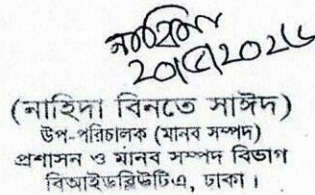 ২০/৫/২০২৬
(নাহিদা বিনতে সাঈদ)
উপ-পরিচালক (মানব সম্পদ)
প্রশাসন ও মানব সম্পদ বিভাগ
বিআইডব্লিউটিএ, ঢাকা।